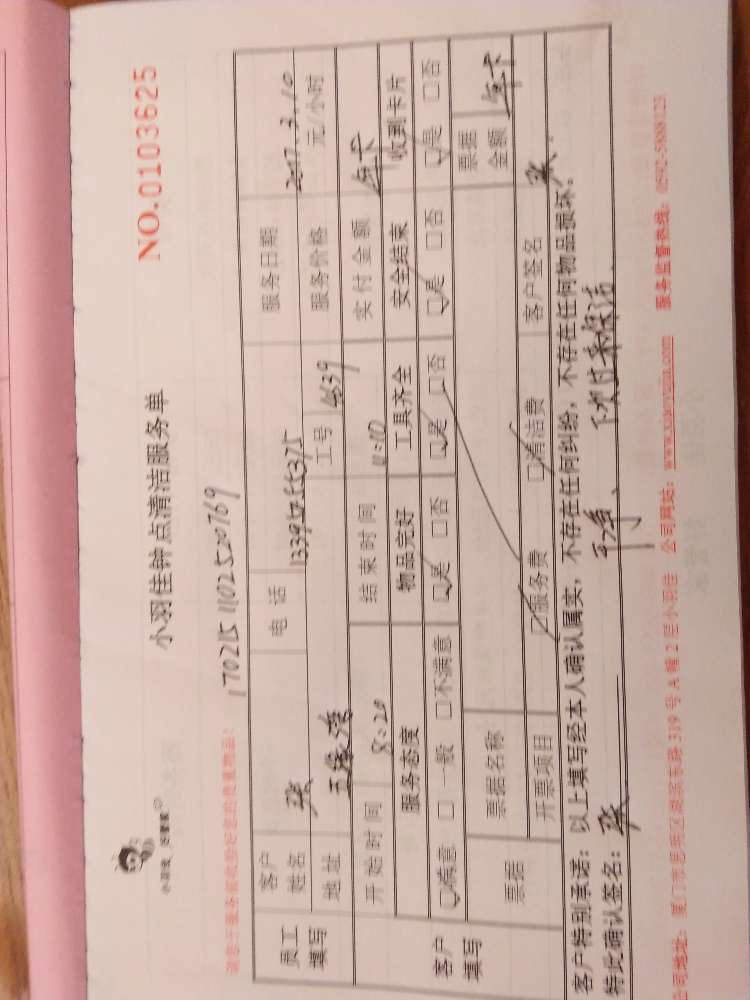 小羽佳钟点清洁服务单
NO.0103625
小羽佳 好管家
170215 1102520769
员工填写
客户姓名 张 电话 服务日期 2017.3.10
地址 工号 4639 服务价格 元/小时
开始时间 8:20 结束时间 11:10 实付金额 年卡
客户填写
服务态度 物品完好 工具齐全 安全结束 收到卡片
☑满意 □一般 □不满意 ☑是 □否 ☑是 □否 ☑是 □否 ☑是 □否
票据 票据名称 票据金额 年卡
开票项目 ☑服务费 ☑清洁费 客户签名 张
客户特别承诺：以上填写经本人确认属实，不存在任何纠纷，不存在任何物品损坏。
特此确认签名：张
公司地址：厦门市思明区湖滨东路 319 号 A 幢 2 层小羽佳 公司网站：www.xiaoyujia.com 服务监督热线：0592-5888812